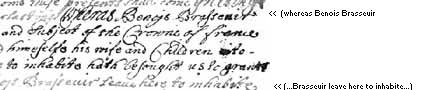 Whereas Benois Brasseuir << (whereas Benois Brasseuir
and Subject of the Crowne of france
himselfe his wife and Children
to inhabite hath besought us to grant
Brasseuir Leave here to inhabite << (...Brasseuir leave here to inhabite...)